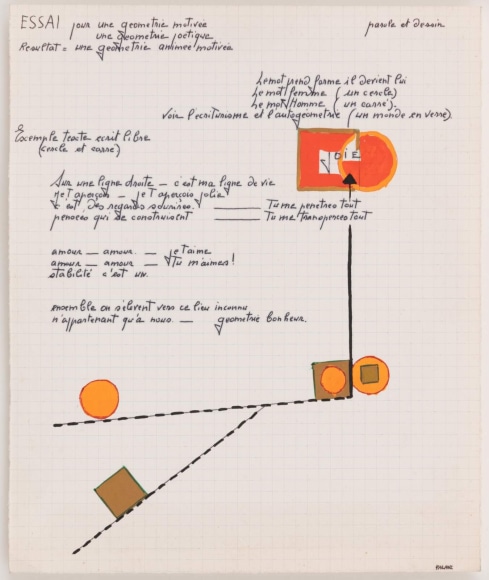 ESSAI pour une geometrie motivée
une geometrie poetique
Resultat = une geometrie animee motivée
parole et dessin
Le mot prend forme il devient lui
Le mot femme (un cercle)
Le mot Homme (un carré).
Voir l'ecriturisme et l'autogeometrie (un monde en verse).
Exemple texte ecrit libre
(cercle et carré)
JOIE
Sur une ligne droite — c'est ma ligne de vie
je t'aperçois — je t'aperçois jolie
c'est des regards sourires. ——— Tu me penetres tout
pensées qui se construisent ——— Tu me transperces tout
amour — amour. — je t'aime
amour — amour — Tu m'aimes!
stabilité c'est un.
ensemble on s'elevent vers ce lieu inconnu
n'appartenant qu'à nous. — geometrie bonheur.